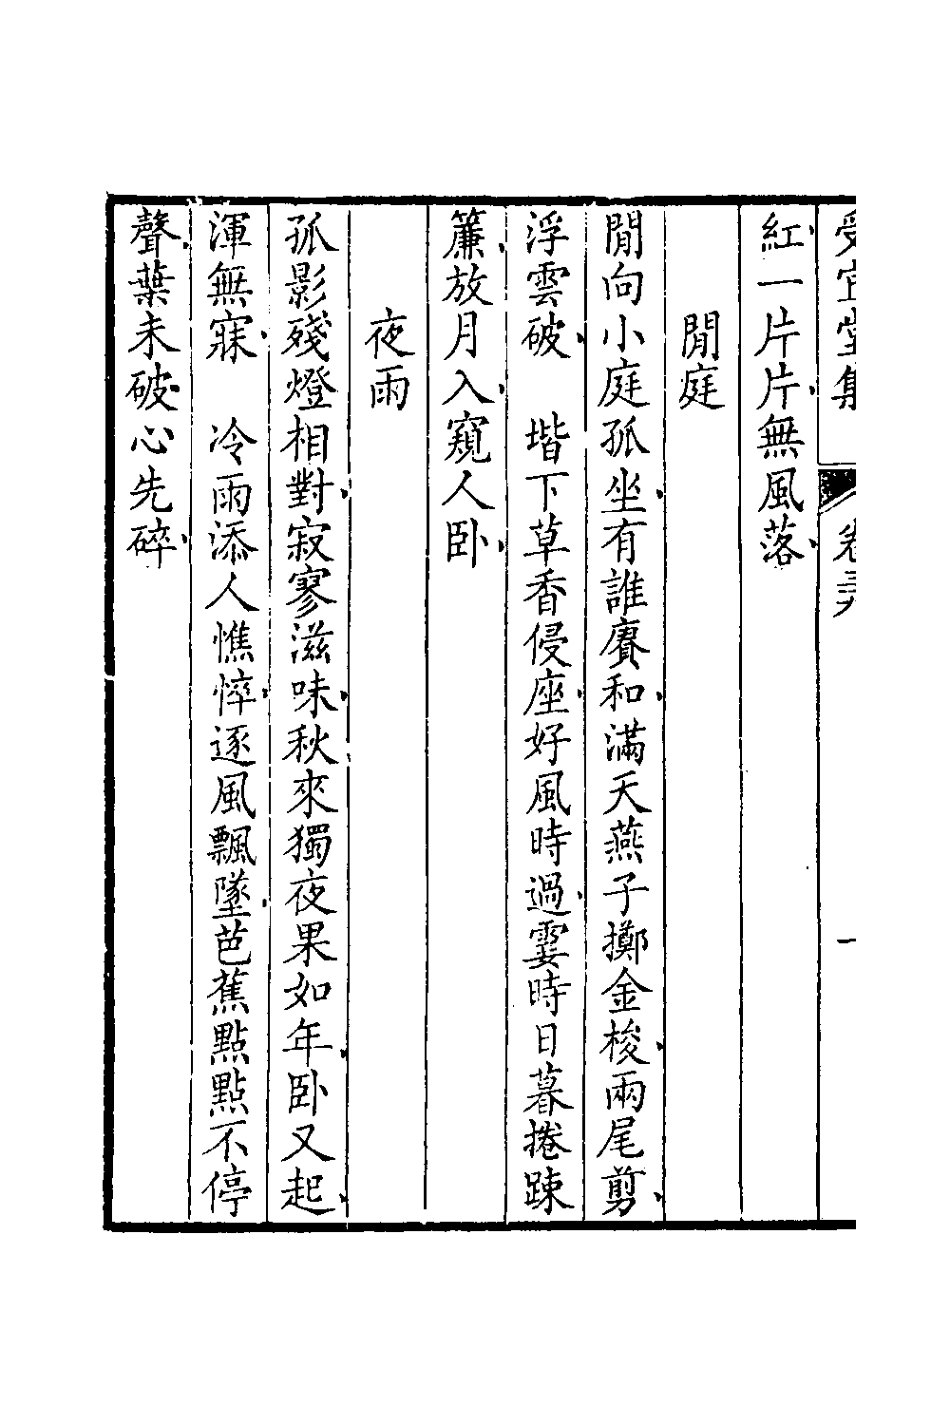 受宜堂集 卷三九 一
紅一片片無風落
閒庭
閒向小庭孤坐有誰賡和滿天燕子擲金梭兩尾剪
浮雲破 堦下草香侵座好風時過霎時日暮捲踈
簾放月入窺人卧
夜雨
孤影殘燈相對寂寥滋味秋來獨夜果如年卧又起
渾無寐 冷雨添人憔悴逐風飄墜芭蕉點點不停
聲葉未破心先碎